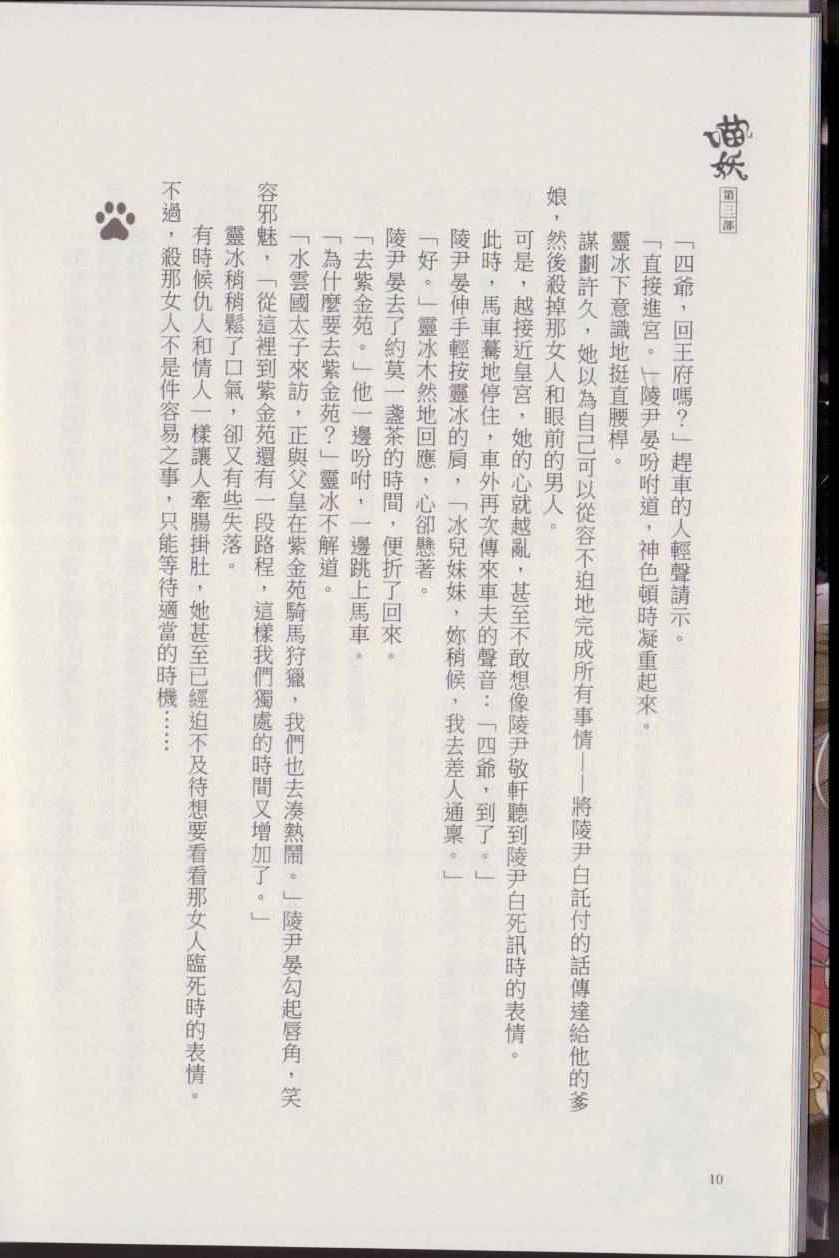 喵妖
第三部
「四爺，回王府嗎？」趕車的人輕聲請示。
「直接進宮。」陵尹晏吩咐道，神色頓時凝重起來。
靈冰下意識地挺直腰桿。
謀劃許久，她以為自己可以從容不迫地完成所有事情——將陵尹白託付的話傳達給他的爹
娘，然後殺掉那女人和眼前的男人。
可是，越接近皇宮，她的心就越亂，甚至不敢想像陵尹敬軒聽到陵尹白死訊時的表情。
此時，馬車驀地停住，車外再次傳來車夫的聲音：「四爺，到了。」
陵尹晏伸手輕按靈冰的肩，「冰兒妹妹，妳稍候，我去差人通稟。」
「好。」靈冰木然地回應，心卻懸著。
陵尹晏去了約莫一盞茶的時間，便折了回來。
「去紫金苑。」他一邊吩咐，一邊跳上馬車。
「為什麼要去紫金苑？」靈冰不解道。
「水雲國太子來訪，正與父皇在紫金苑騎馬狩獵，我們也去湊熱鬧。」陵尹晏勾起唇角，笑
容邪魅，「從這裡到紫金苑還有一段路程，這樣我們獨處的時間又增加了。」
靈冰稍稍鬆了口氣，卻又有些失落。
有時候仇人和情人一樣讓人牽腸掛肚，她甚至已經迫不及待想要看看那女人臨死時的表情。
不過，殺那女人不是件容易之事，只能等待適當的時機……
10